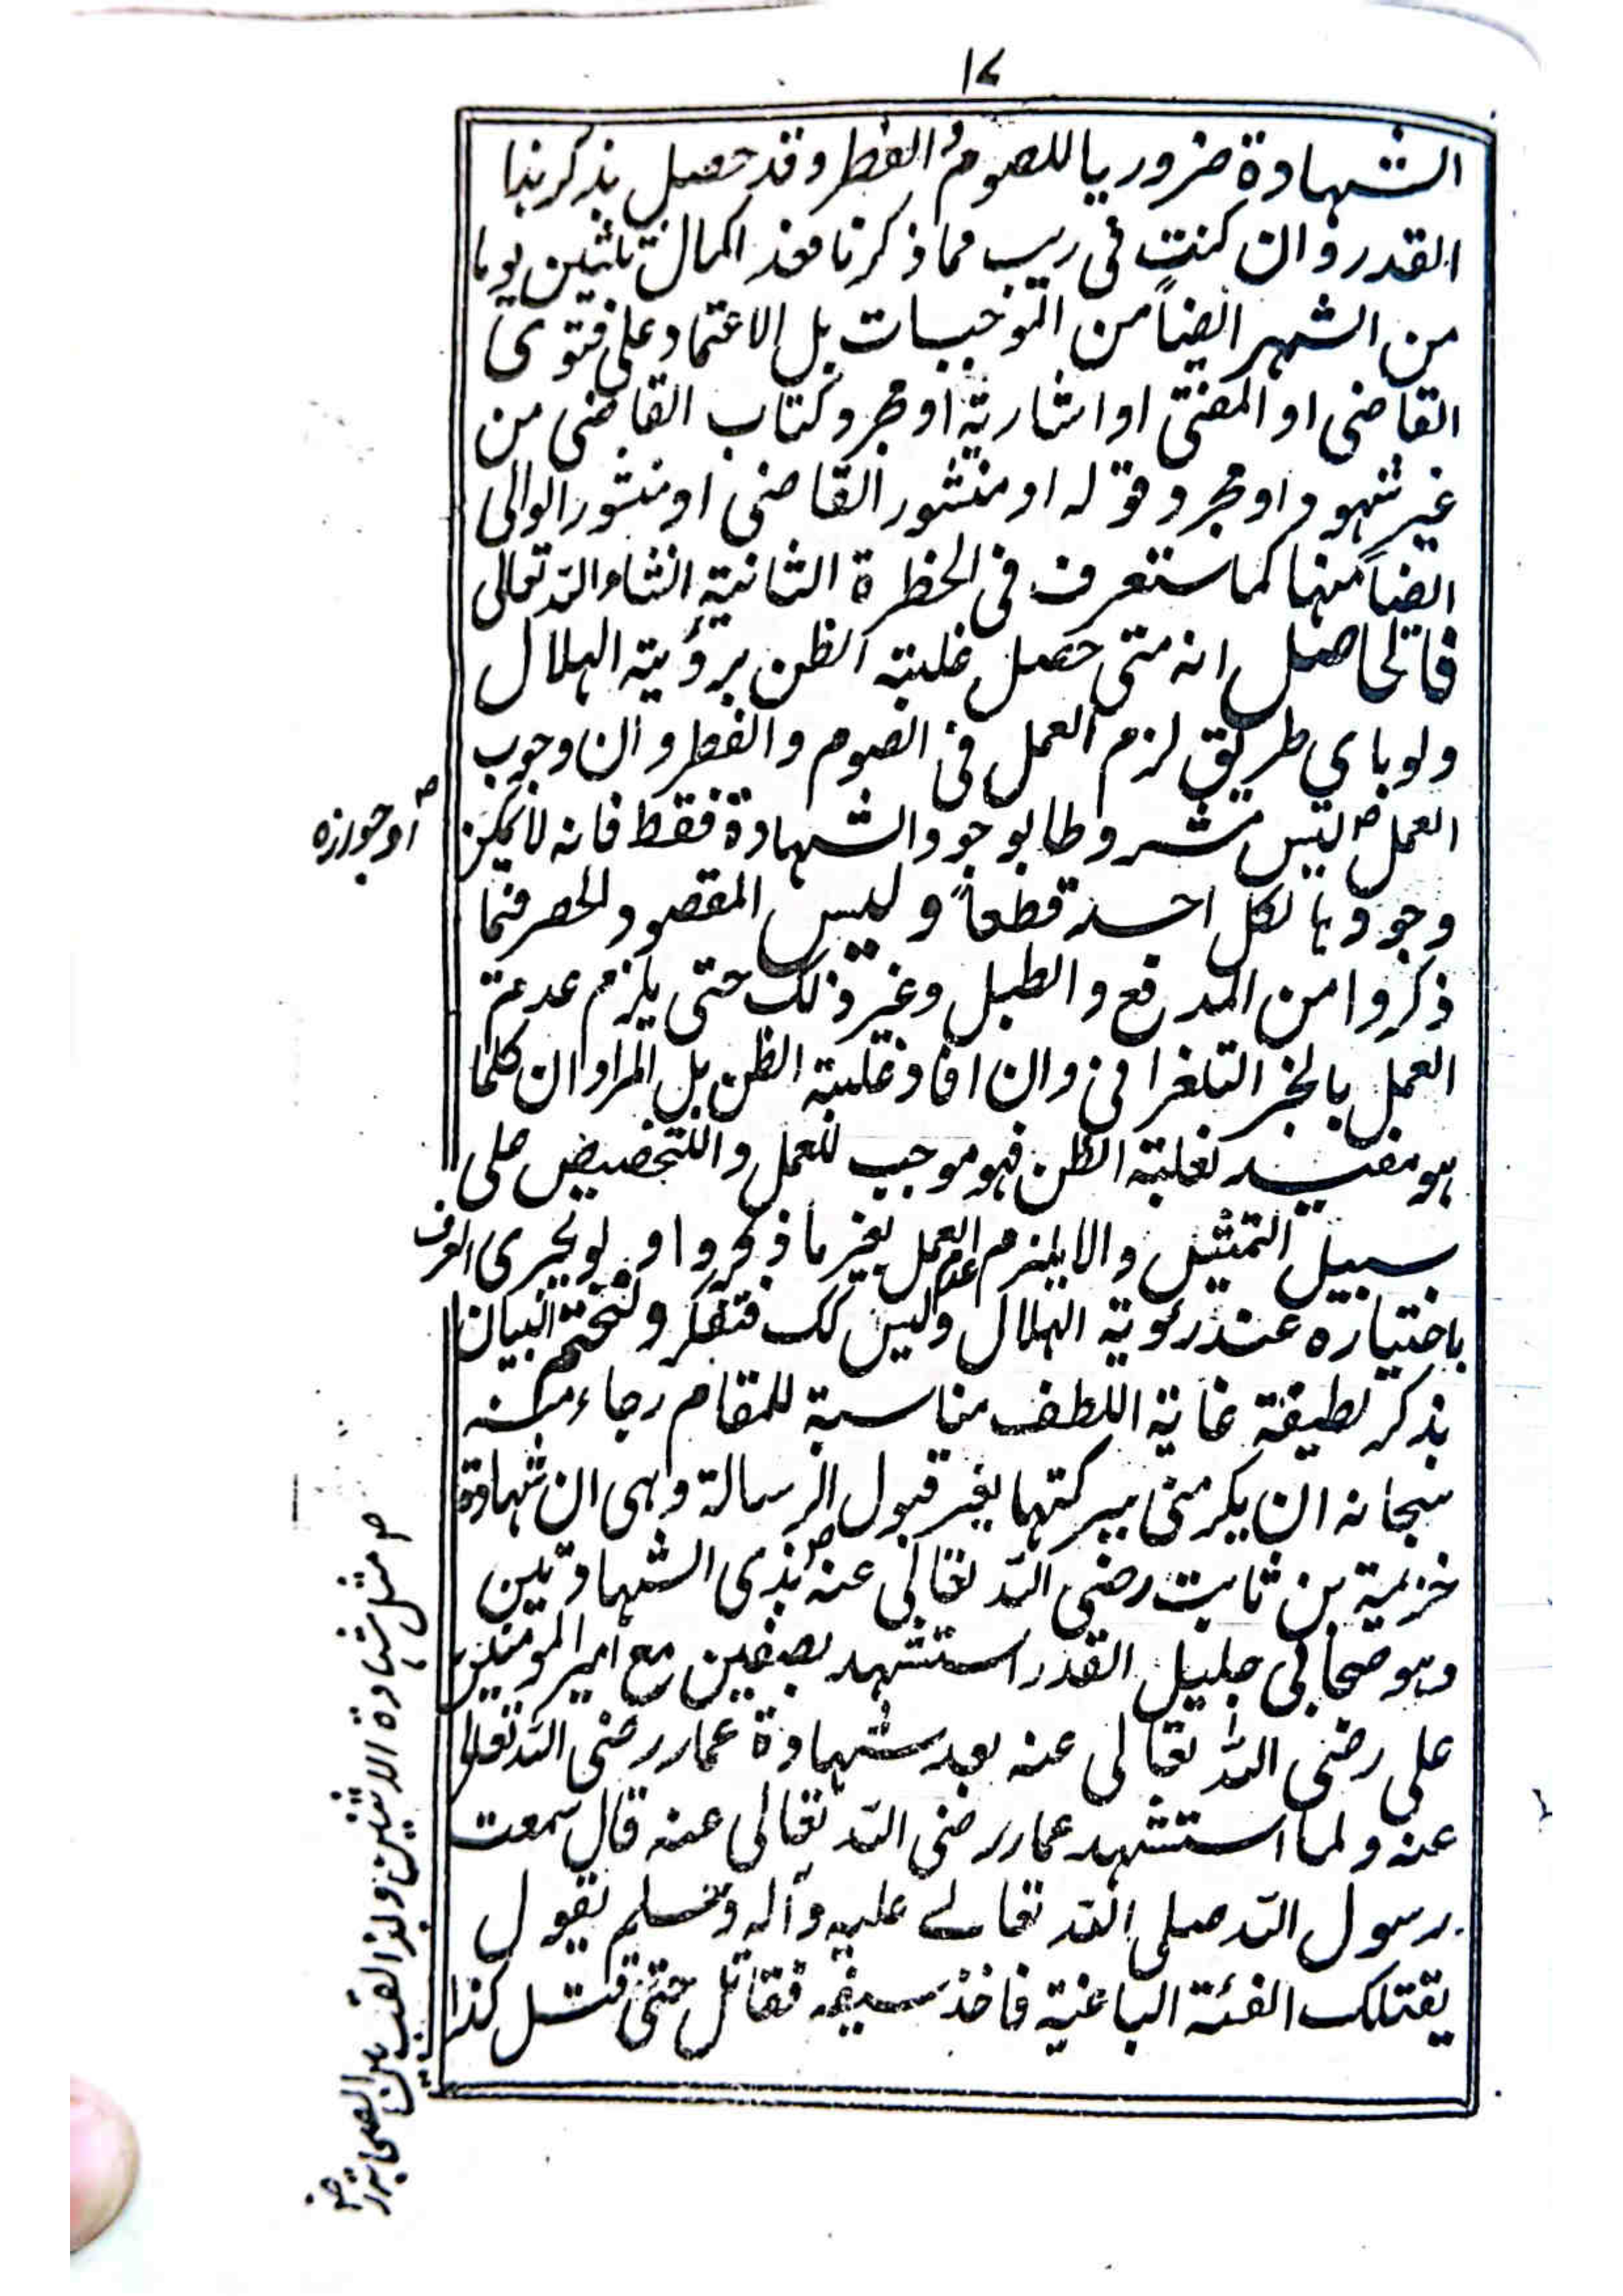 ١٧
الشهادة ضروريا للصوم والفطر وقد حصل بذكر هذا
القدر وان كنت فى ريب مما ذكرنا فعند اكمال ثلثين يوما
من الشهر ايضاً من الموجبات بل الاعتماد على فتوى
القاضى او المفتى او اشارية او مجرد كتاب القاضى من
غير شهود او مجرد قوله او منشور القاضى او منشور الوالى
ايضاً منها كما ستعرف فى الخطرة الثانية انشاء الله تعالى
فالحاصل انه متى حصل غلبة الظن برؤية الهلال
ولو باى طريق لزم العمل فى الصوم والفطر وان وجوب
العمل ليس مشروطا بوجود الشهادة فقط فانه لا يمكن
او جوازه
وجودها لكل احد قطعاً وليس المقصود الحصر فيما
ذكروا من المدفع والطبل وغير ذلك حتى يلزم عدم
العمل بالخبر التلغرافى وان افاد غلبة الظن بل المراد ان كلما
هو مفيد لغلبة الظن فهو موجب للعمل والتخصيص على
سبيل التمثيل والا يلزم عدم العمل بغير ما ذكروا ولو يجرى العرف
باختياره عند رئوية الهلال وليس كك فتفكر ولنختم البيان
بذكر لطيفة غاية اللطف مناسبة للمقام رجاء منه
سبحانه ان يكرمنى ببركتها بغير قبول الرسالة وهى ان شهادة
خزيمة بن ثابت رضى الله تعالى عنه بذى الشهادتين
وهو صحابى جليل القدر استشهد بصفين مع امير المومنين
على رضى الله تعالى عنه بعد شهادة عمار رضى الله تعالى
عنه ولما استشهد عمار رضى الله تعالى عنه قال سمعت
رسول الله صلى الله تعالى عليه وآله وسلم يقول
يقتلك الفئة الباغية فاخذ سيفه فقاتل حتى قتل كذا
مثل شهادة الاثنين ولذا لقب بين الصحابة رض